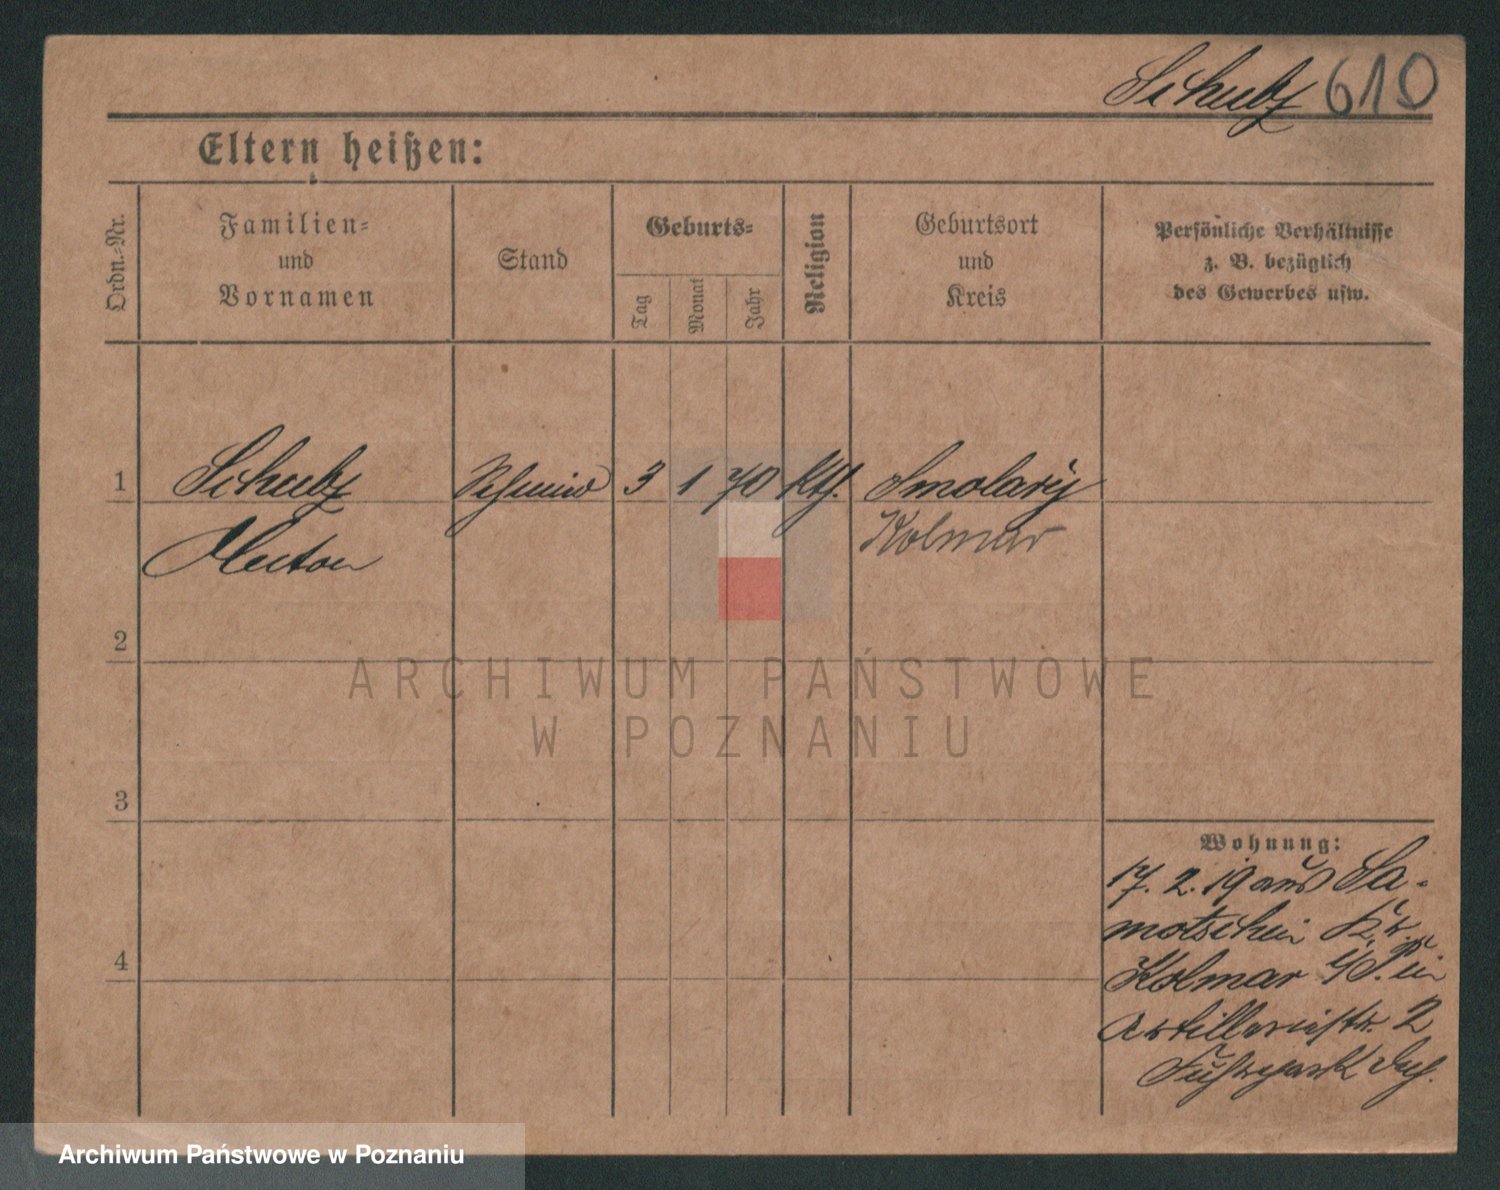 Schulz 610
Eltern heißen:
Ordn.-Nr.
Familien-
und
Vornamen
Stand
Geburts-
Tag
Monat
Jahr
Religion
Geburtsort
und
Kreis
Persönliche Verhältnisse
z. B. bezüglich
des Gewerbes usw.
1
Schulz
Schmied
3
1
70
Kth.
Smolary
Anton
Kolmar
2
ARCHIWUM PAŃSTWOWE
W POZNANIU
3
Wohnung:
17. 2. 19 aus Sa-
motschin Kr.
Kolmar i/P. in
Artilleriestr. 2
Fuhrpark
4
Archiwum Państwowe w Poznaniu